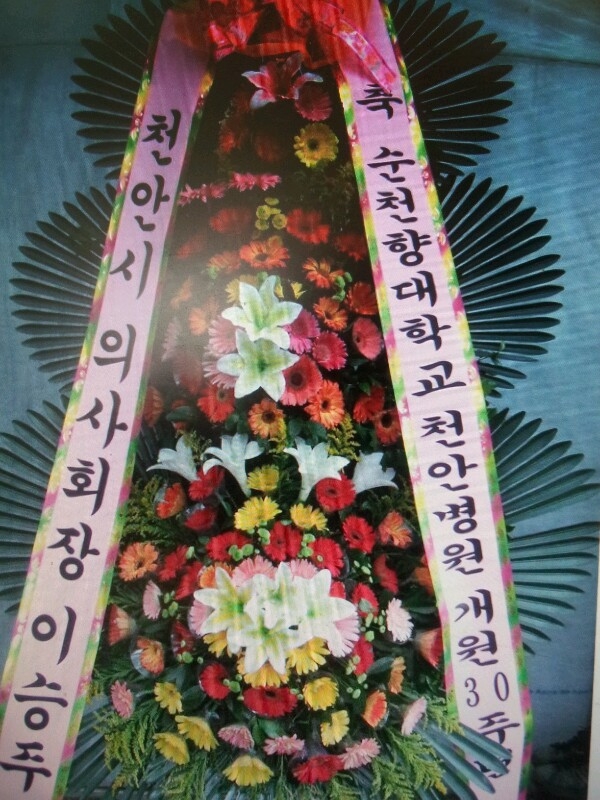 축 순천향대학교 천안병원 개원 30주년
천안시 의사회장 이승주